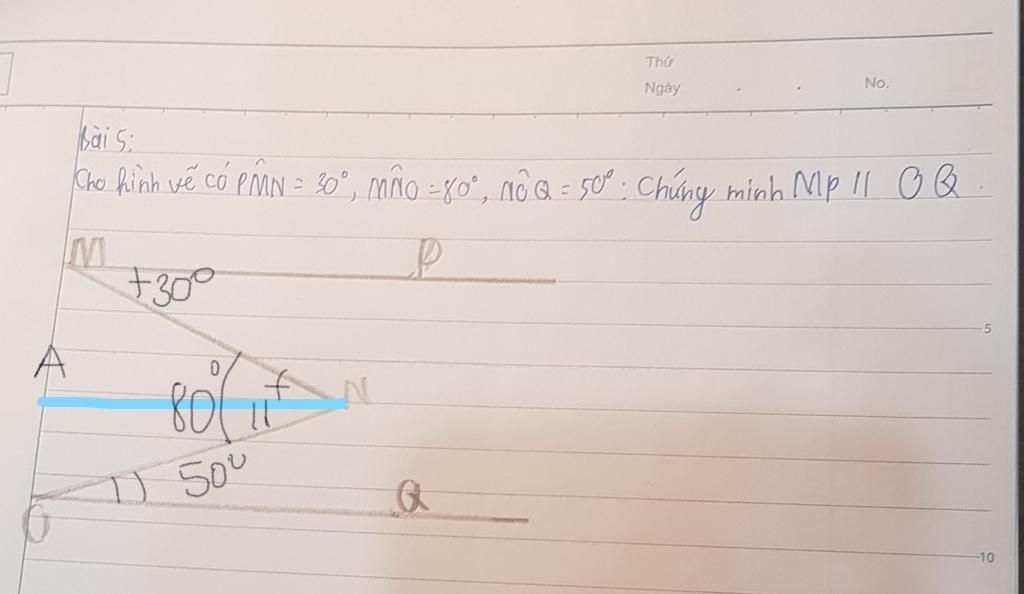 Thứ
Ngày . . No.
Bài 5:
Cho hình vẽ có PM̂N = 30°, MN̂O = 80°, NÔQ = 50°: Chứng minh MP // OQ.
M P
+30°
5
A
80° 11 + N
50°
Q
O
10